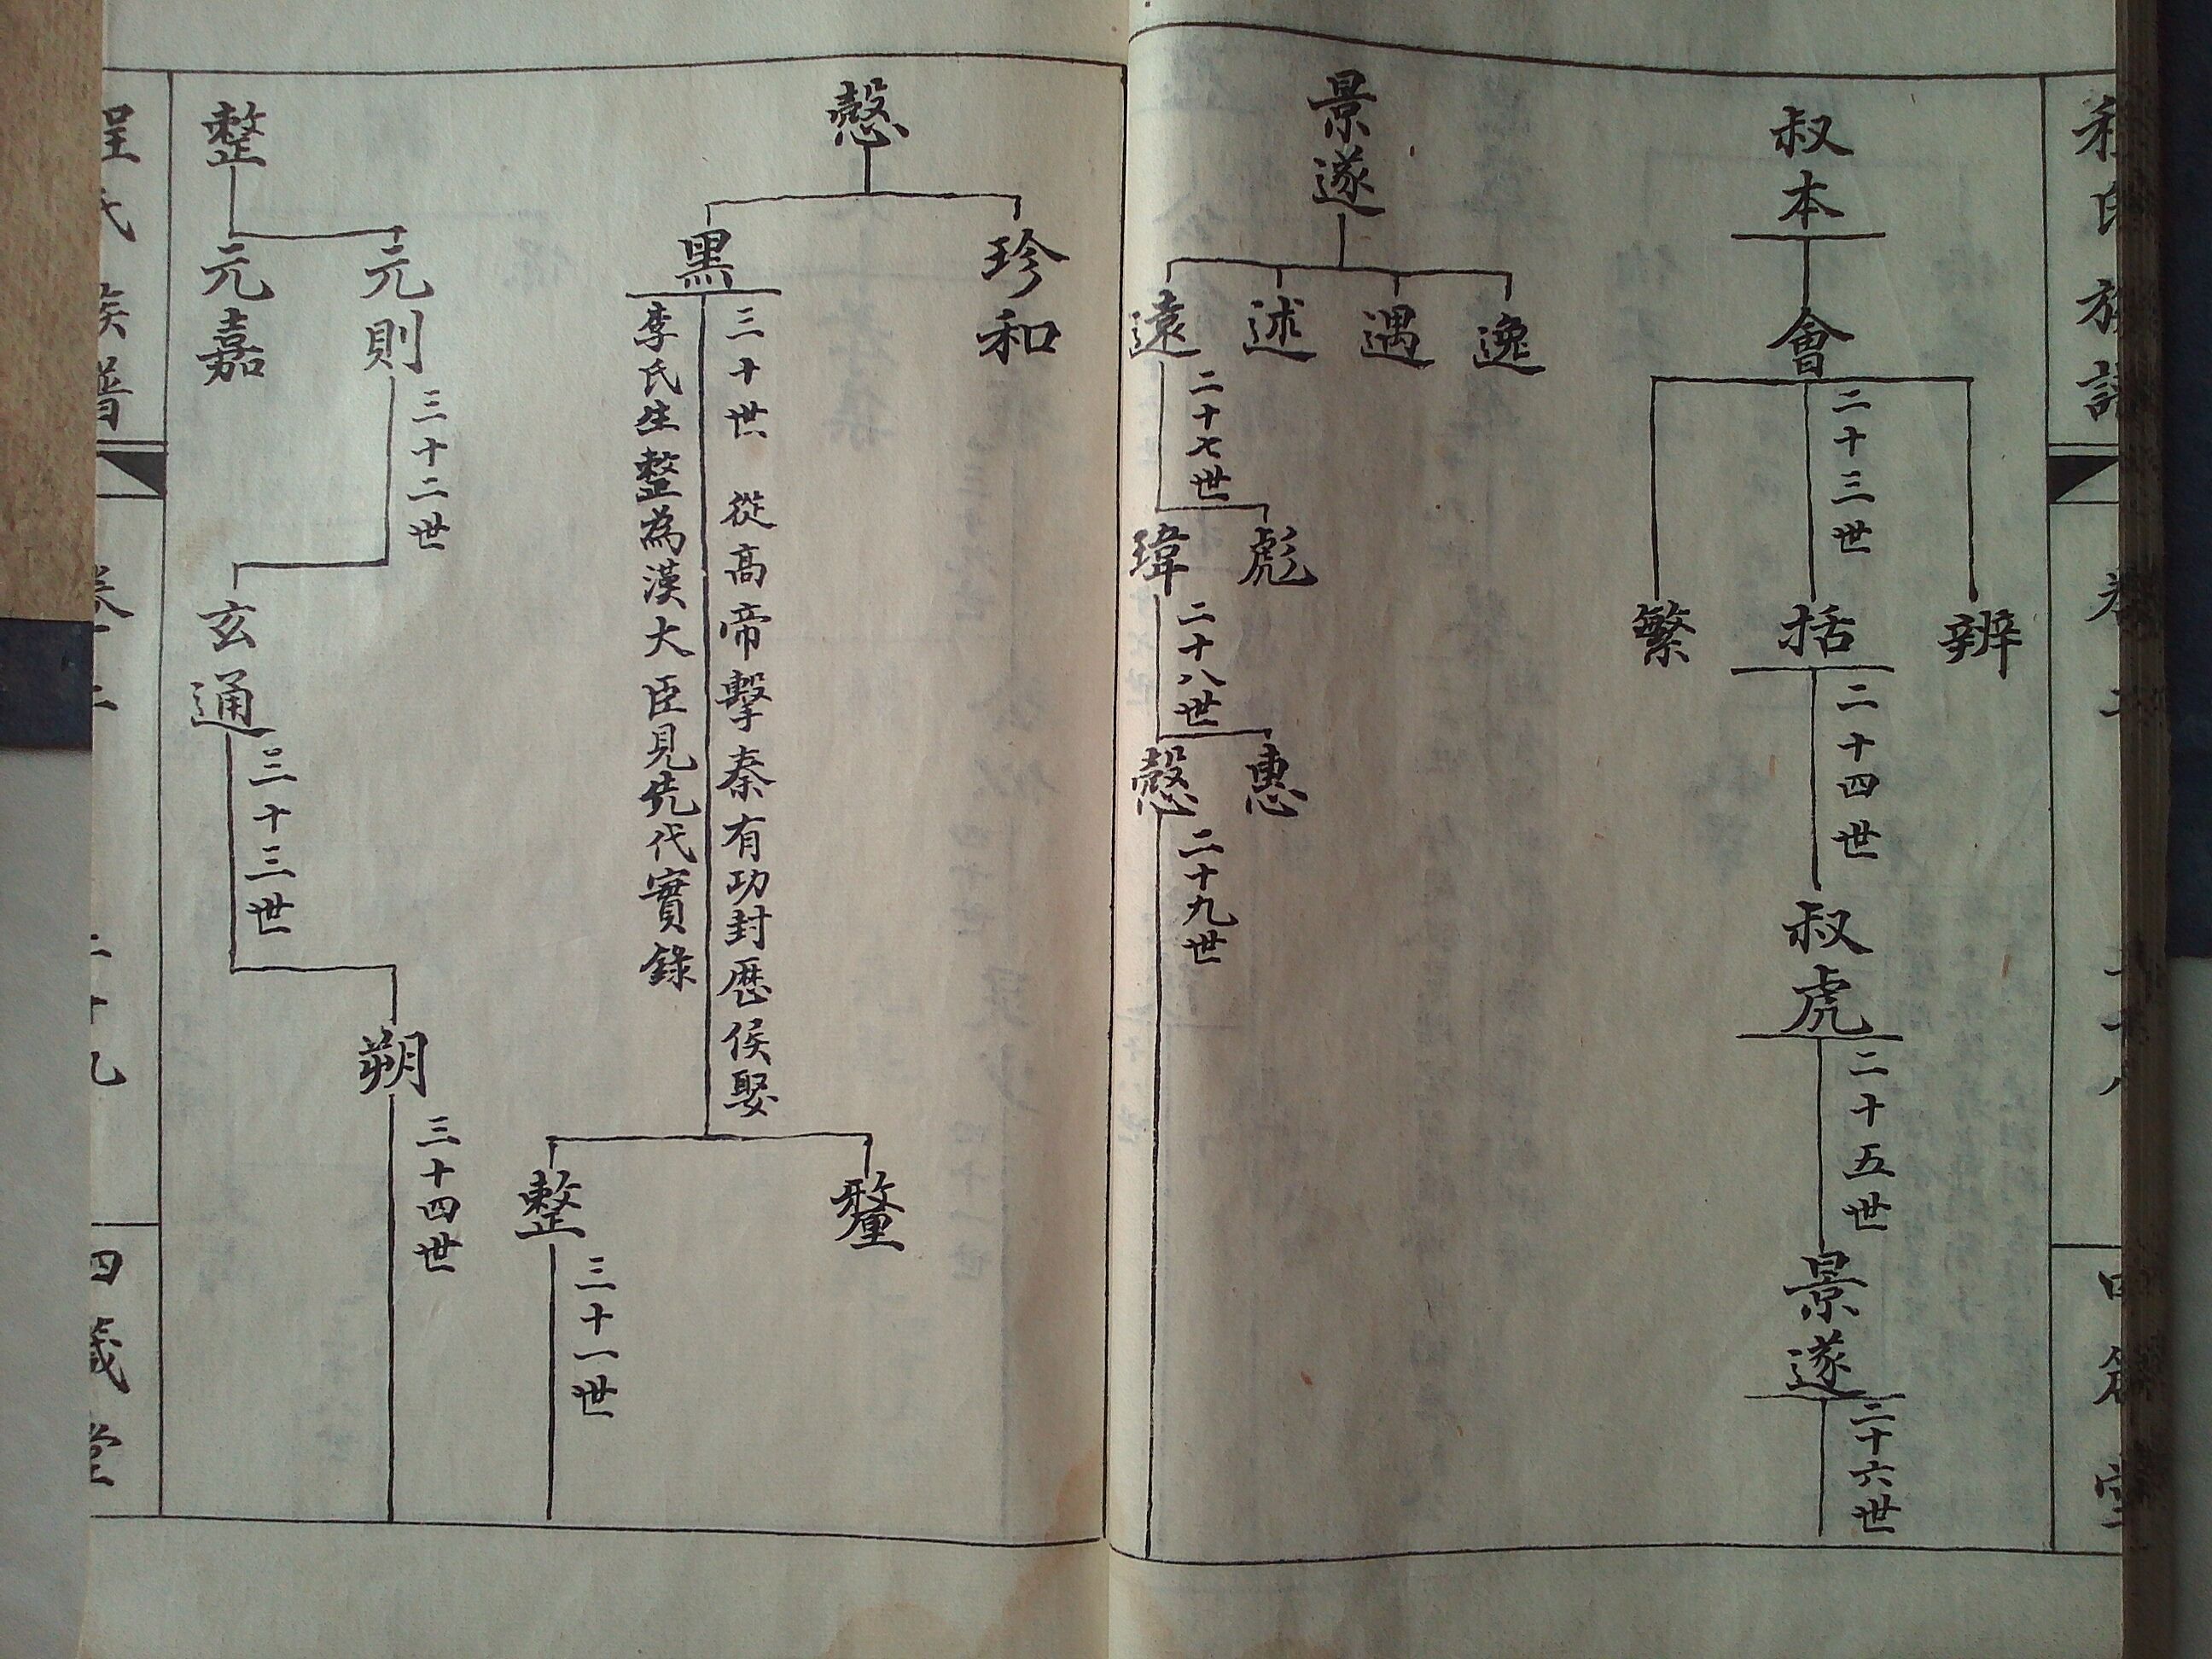 程氏族譜
叔本
會
二十三世
辨
括
繁
二十四世
叔虎
二十五世
景遂
二十六世
景遂
逸
遇
述
遠
二十七世
彪
瑋
二十八世
惠
愨
二十九世
愨
珍和
黑
三十世 從高帝擊秦有功封歷侯娶
李氏生整為漢大臣見先代實錄
釐
整
三十一世
整
元則
元嘉
三十二世
玄通
三十三世
朔
三十四世
程氏族譜
卷二
二十九
四箴堂